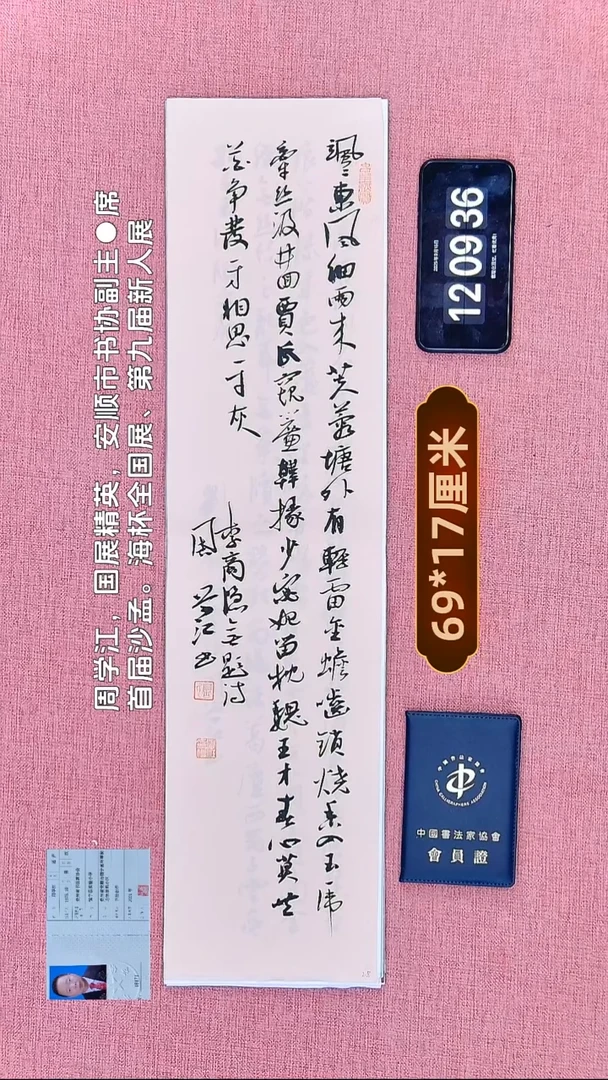 周学江，国展精英，安顺市书协副主●席
首届沙孟。海杯全国展、第九届新人展
颯〻東风細雨来芙蓉塘外有輕雷金蟾嚙鎖燒香入玉虎
牽丝汲井回賈氏窥簾韓掾少宓妃留枕魏王才春心莫共
花争發一寸相思一寸灰
李商隐無題诗
周学江书
12 09 36
69*17厘米
中國書法家協會
會員證